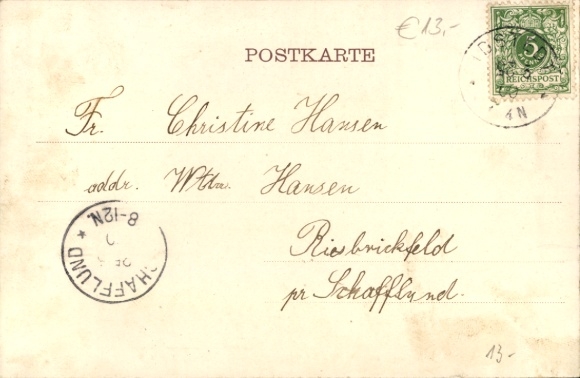 €13,-
POSTKARTE
5
REICHSPOST
4N
Fr. Christine Hansen
addr. Wtwe. Hansen
Riesbrickfeld
pr. Schafflund.
8-12N.
SCHAFFLUND *
13-